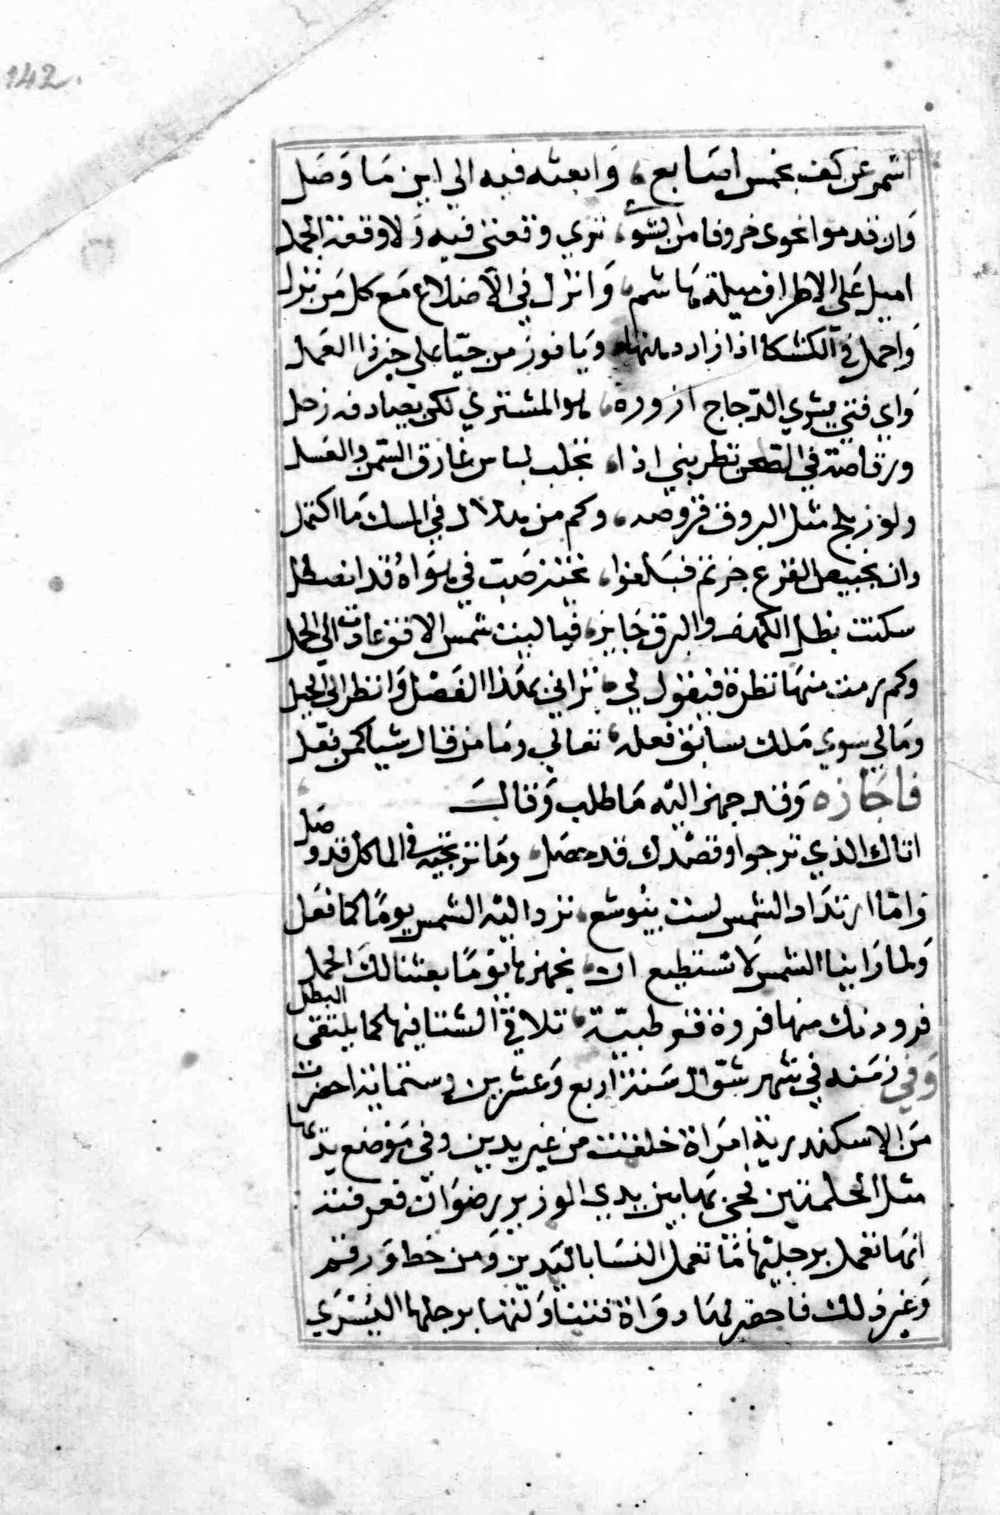 142.
اشمر عن كف بخمس اصابع، وابعثه فيه الي اين ما وصل
وان قدموا نحوي خروفا من الشوي، تري وقعتي فيه ولا وقعة الجمل
اميل علي الاطراف ميلة هاشم، وانزل في الاضلاع مع كل من نزل
واحمل في الكشكا اذا زاد دهنها، ويا فوز من حيا علي خير العمل
واي فتي يشوي الدجاج ازوره، هو المشتري لكن يصادفه زحل
ورقاصة في الصحن تطربني اذا، تجلب لباس غارق السمن والعسل
ولوزينج مثل البروق قروصه، وكم من هلال في المسك ما اكتمل
وان بخبيص القرع جزتم فبلغوا، تحية صب في هواه قد انفصل
سكنت بظل الكهف والبرق جايز، فيا ليت شمس الافق عادت الي الحمل
وكم رمت منها نظرة فيقول لي، تراني بهذا الفصل وانظر الي الجبل
ومالي سوي ملك سابق فعله، تعالي وما من قال شيا كمن فعل
فاجازه وقد جهز اليه ما طلب وقال
اتاك الذي ترجوا وقصدك قد حصل، وما ترتجيه في الماكل قد وصل
واما ارتداد الشمس لست بيوشع، نرد اليه الشمس يوما كما فعل
ولما راينا الشمس لا نستطيع ان، نجهزها يوما بعثنا لك الحمل
فرودتك منها فروة طيبة، تلاقي الشتا فيها كما يلتقي البطل
وفي زمنه في شهر شوال سنة اربع وعشرين وستماية احضرت
من الاسكندرية امراة خلقت من غير يدين وفي موضع يديها
مثل الحلمتين فجي بها بين يدي الوزير رضوان فعرفته
انها تعمل برجليها ما تعمل النسا باليدين ومن خط ورقم
وغير ذلك فاحضر لها دواة فتناولتها برجلها اليسري